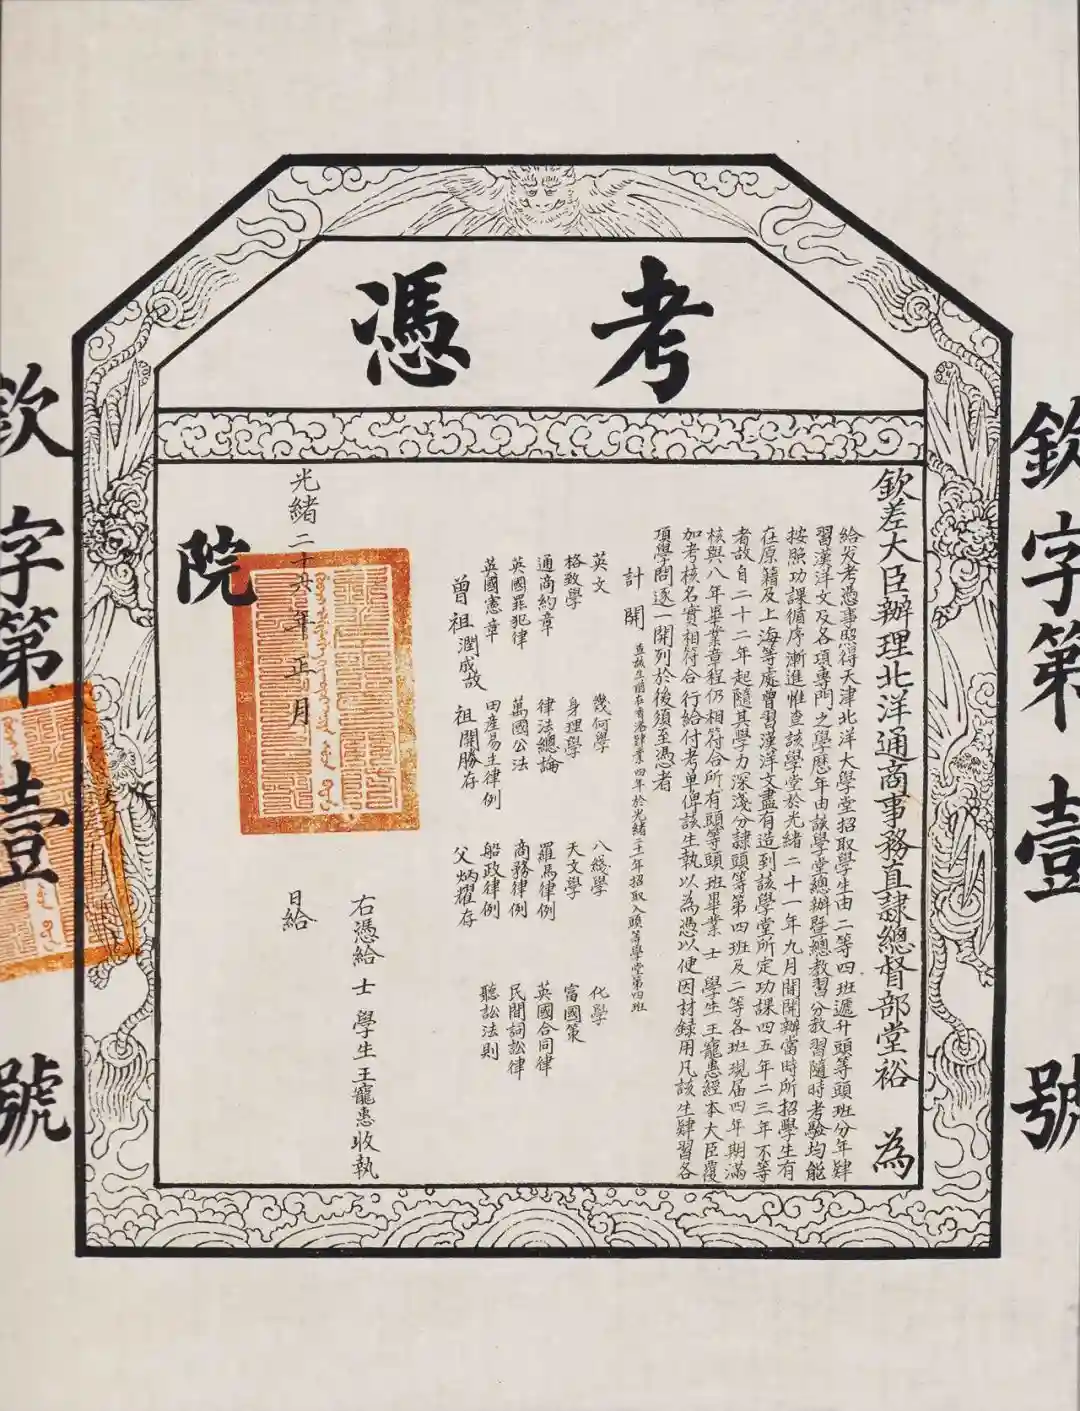 考憑
欽差大臣辦理北洋通商事務直隸總督部堂裕 為
給發考憑事照得天津北洋大學堂招取學生由二等四班遞升頭等頭班分年肄
習漢洋文及各項專門之學歷年由該學堂總辦暨總教習分教習隨時考驗均能
按照功課循序漸進惟查該學堂於光緒二十一年九月間開辦當時所招學生有
在原籍及上海等處曾習漢洋文盡有造到該學堂所定功課四五年二三年不等
者故自二十二年起隨其學力深淺分隸頭等第四班及二等各班現屆四年期滿
核與八年畢業章程仍相符合所有頭等頭班畢業士 學生王寵惠經本大臣覆
加考核名實相符合行給付考單俾該生執以為憑以便因材錄用凡該生肄習各
項學問逐一開列於後須至憑者
計開 查該生前在香港肄業四年於光緒二十一年招取入頭等學堂第四班
英文 幾何學 八綫學 化學
格致學 身理學 天文學 富國策
通商約章 律法總論 羅馬律例 英國合同律
英國罪犯律 萬國公法 商務律例 民間詞訟律
英國憲章 田產易主律例 船政律例 聽訟法則
曾祖潤成故 祖開勝存 父炳耀存
右憑給 士 學生王寵惠收執
光緒二十六年正月 日給
院
欽字第壹號
欽字第壹號